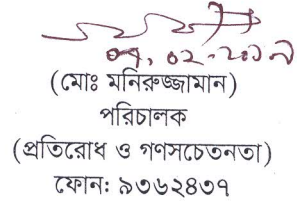 ০৭.০২.২০১৭
(মোঃ মনিরুজ্জামান)
পরিচালক
(প্রতিরোধ ও গণসচেতনতা)
ফোন: ৯৩৬২৪৩৭